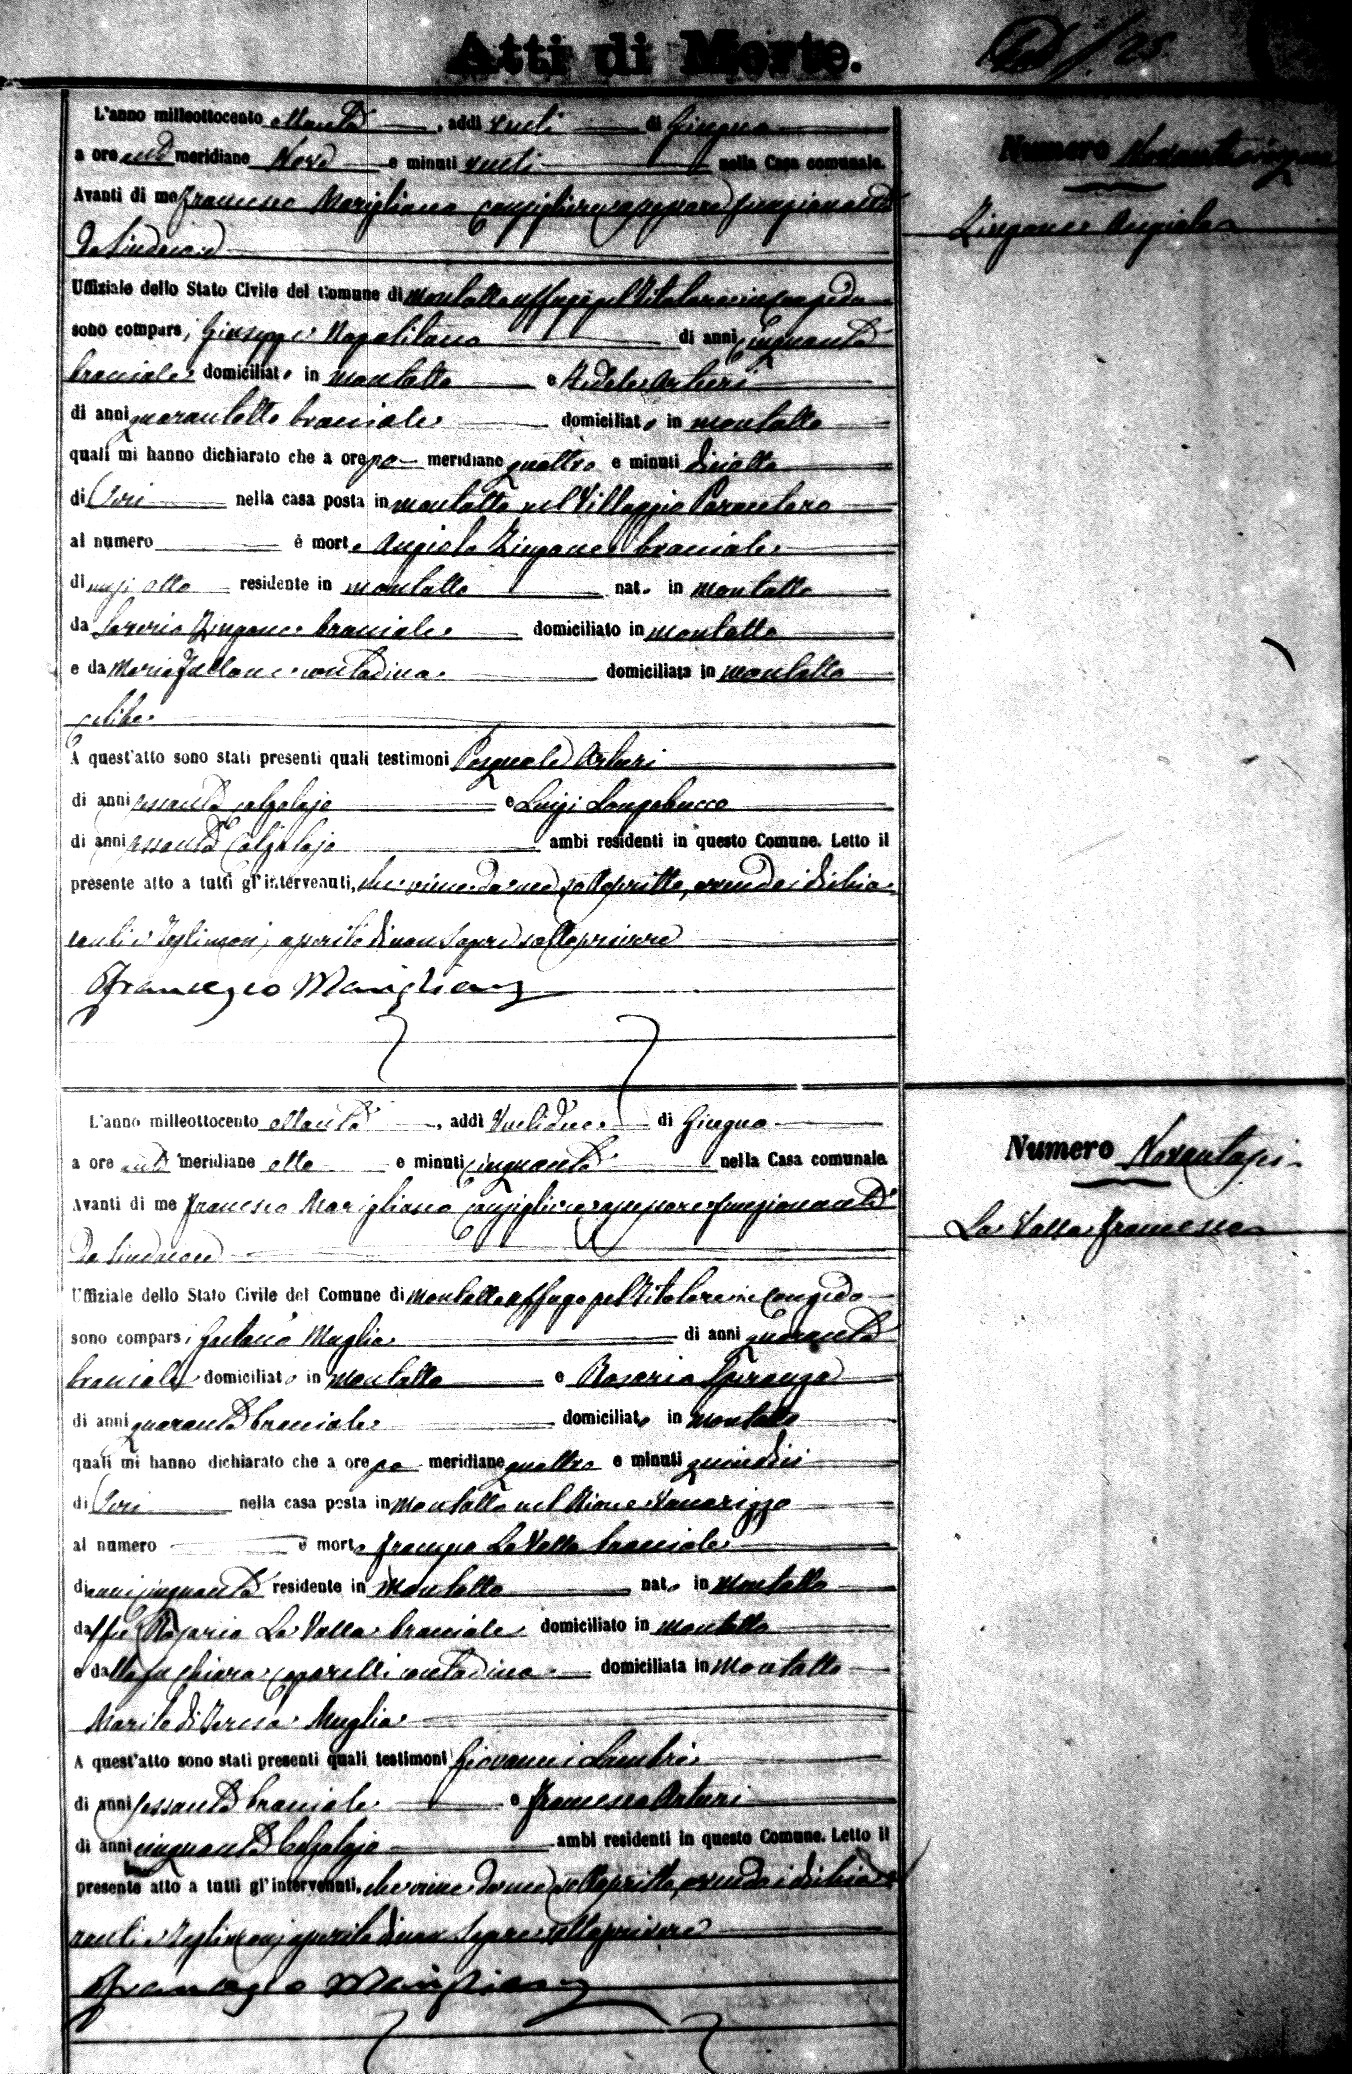 Atti di Morte.
25
L'anno milleottocento ottanta, addì venti di Giugno
a ore anti meridiane Nove e minuti venti nella Casa comunale.
Avanti di me Francesco Marigliano Consigliere assessore funzionante
da Sindaco
Uffiziale dello Stato Civile del Comune di Montalto Uffugo pel Titolare in congedo
sono comparsi Giuseppe Napolitano di anni cinquanta
bracciale domiciliato in Montalto e Fedele Arturi
di anni quarantotto bracciale domiciliato in Montalto
quali mi hanno dichiarato che a ore po meridiane quattro e minuti diciotto
di Ieri nella casa posta in Montalto nel Villaggio Parantoro
al numero è morto Angiolo Zingone bracciale
di mesi otto residente in Montalto nato in Montalto
da Saverio Zingone bracciale domiciliato in Montalto
e da Maria contadina domiciliata in Montalto
celibe
A quest'atto sono stati presenti quali testimoni Pasquale Arturi
di anni sessanta calzolajo e Luigi Longobucco
di anni sessanta calzolajo ambi residenti in questo Comune. Letto il
presente atto a tutti gl'intervenuti, che viene da me sottoscritto, avendo i dichia
ranti e Testimoni asserito di non sapere sottoscrivere
Francesco Marigliano
Numero Novantacinque
Zingone Angiolo
L'anno milleottocento ottanta, addì Ventidue di Giugno
a ore anti meridiane otto e minuti cinquanta nella Casa comunale.
Avanti di me Francesco Marigliano Consigliere assessore funzionante
da Sindaco
Uffiziale dello Stato Civile del Comune di Montalto Uffugo pel Titolare in congedo
sono comparsi Gaetano Muglia di anni quaranta
bracciale domiciliato in Montalto e Rosario Speranza
di anni quaranta bracciale domiciliato in Montalto
quali mi hanno dichiarato che a ore po meridiane quattro e minuti quindici
di Ieri nella casa posta in Montalto nel Rione Vaccarizzo
al numero è morto Francesco La Valla bracciale
di anni cinquanta residente in Montalto nato in Montalto
dal fu Rosario La Valla bracciale domiciliato in Montalto
e dalla fu Chiara Caparelli contadina domiciliata in Montalto
Marito di Teresa Muglia
A quest'atto sono stati presenti quali testimoni Giovanni Lambri
di anni sessanta bracciale e Francesco Arturi
di anni cinquanta Calzolajo ambi residenti in questo Comune. Letto il
presente atto a tutti gl'intervenuti, che viene da me sottoscritto, avendo i dichia
ranti e Testimoni asserito di non sapere sottoscrivere
Francesco Marigliano
Numero Novantasei
La Valla Francesco